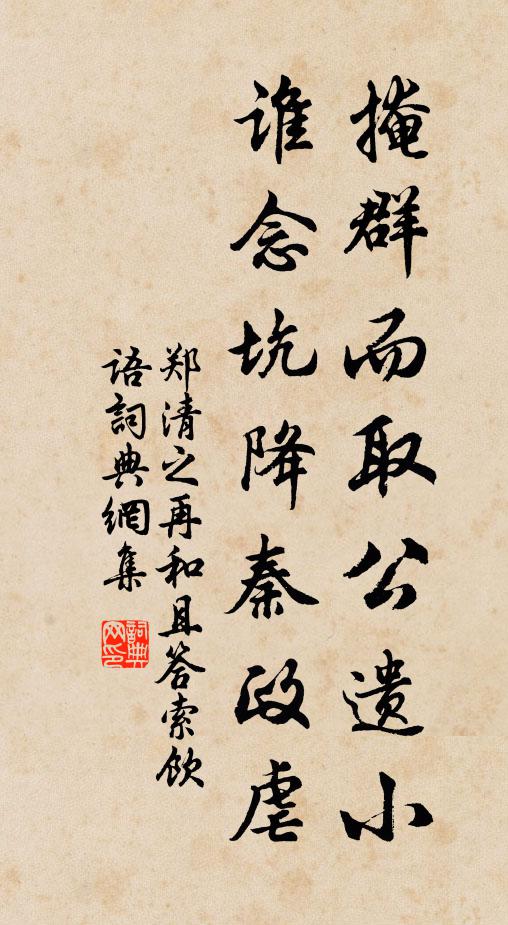 掩群而取公遗小
谁念坑降秦政虐
郑清之再和且答索饮
语詞典網集
詞典网印